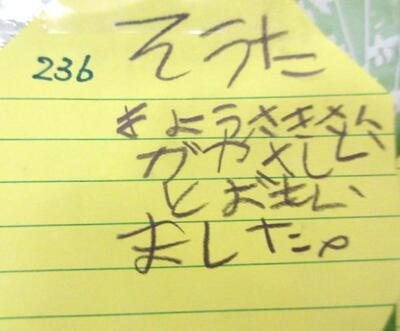 236
そうた
きょうささきさん
がやさしい
とおもい
ました。